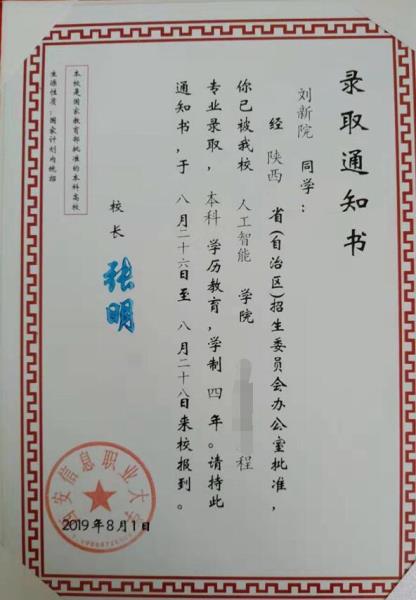 录取通知书
刘新院 同学：
经 陕西 省(自治区)招生委员会办公室批准，
你已被我校 人工智能 学院 程
专业录取，本科 学历教育，学制 四 年。请持此
通知书，于 八月二十六日至 八月二十八日来校报到。
校长 张明
本校是国家教育部批准的本科高校
生源性质：国家计划内统招
西安信息职业大学
2019年8月1日